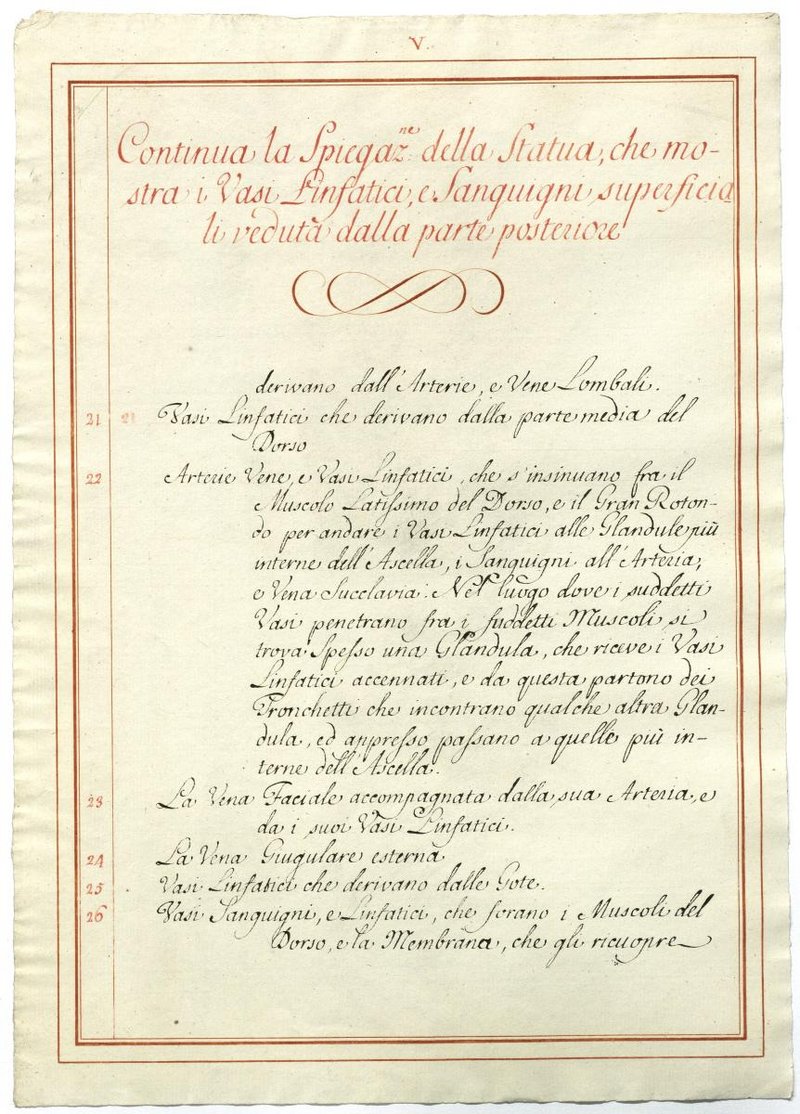 V.
Continua la Spiegaz.ne della Statua, che mo-
stra i Vasi Linfatici, e Sanguigni superficia
li veduta dalla parte posteriore
derivano dall'Arterie, e Vene Lombali.
21 21 Vasi Linfatici che derivano dalla parte media del
Dorso
22 Arterie Vene, e Vasi Linfatici, che s'insinuano fra il
Muscolo Latissimo del Dorso, e il Gran Roton-
do per andare i Vasi Linfatici alle Glandule più
interne dell'Ascella, i Sanguigni all'Arteria,
e Vena Succlavia. Nel luogo dove i suddetti
Vasi penetrano fra i suddetti Muscoli si
trova spesso una Glandula, che riceve i Vasi
Linfatici accennati, e da questa partono dei
Tronchetti che incontrano qualche altra Glan-
dula, ed appresso passano a quelle più in-
terne dell'Ascella.
23 La Vena Faciale accompagnata dalla sua Arteria, e
da i suoi Vasi Linfatici.
24 La Vena Giugulare esterna
25 Vasi Linfatici che derivano dalle Gote.
26 Vasi Sanguigni, e Linfatici, che forano i Muscoli del
Dorso, e la Membrana, che gli ricuopre